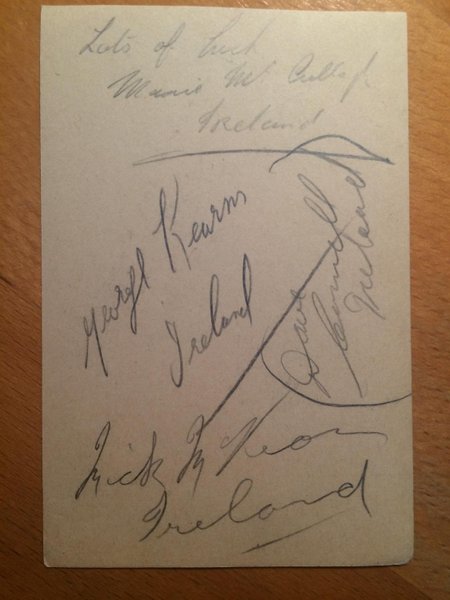 Lots of luck
Mamie McCullagh
Ireland
George Kearns
Ireland
Dave Connell
Ireland
Mick McKeon
Ireland